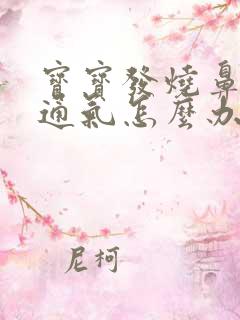 寶寶發燒鼻
通氣怎麼办
尼柯